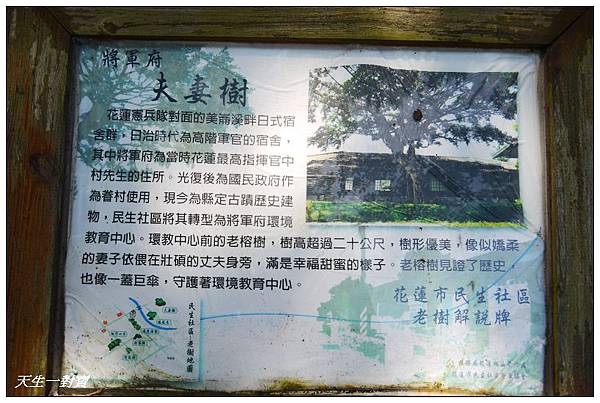 將軍府
夫妻樹
花蓮憲兵隊對面的美崙溪畔日式宿
舍群，日治時代為高階軍官的宿舍，
其中將軍府為當時花蓮最高指揮官中
村先生的住所。光復後為國民政府作
為眷村使用，現今為縣定古蹟歷史建
物，民生社區將其轉型為將軍府環境
教育中心。環教中心前的老榕樹，樹高超過二十公尺，樹形優美，像似嬌柔
的妻子依偎在壯碩的丈夫身旁，滿是幸福甜蜜的樣子。老榕樹見證了歷史，
也像一蓋巨傘，守護著環境教育中心。
花蓮市民生社區
老樹解說牌
民生社區老樹地圖
天生一對寶